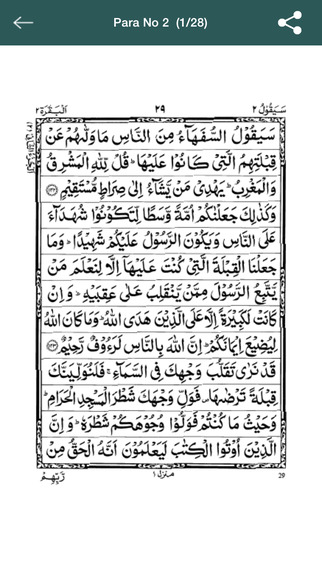 Para No 2 (1/28)
سَيَقُوْلُ ٢
٢٩
اَلْبَقَرَة ٢
سَيَقُوْلُ السُّفَهَآءُ مِنَ النَّاسِ مَا وَلّٰىهُمْ عَنْ
قِبْلَتِهِمُ الَّتِيْ كَانُوْا عَلَيْهَا ؕ قُلْ لِّلّٰهِ الْمَشْرِقُ
وَالْمَغْرِبُ ؕ يَهْدِيْ مَنْ يَّشَآءُ اِلٰى صِرَاطٍ مُّسْتَقِيْمٍ ﴿۱۴۲﴾
وَكَذٰلِكَ جَعَلْنٰكُمْ اُمَّةً وَّسَطًا لِّتَكُوْنُوْا شُهَدَآءَ
عَلَى النَّاسِ وَيَكُوْنَ الرَّسُوْلُ عَلَيْكُمْ شَهِيْدًا ؕ وَمَا
جَعَلْنَا الْقِبْلَةَ الَّتِيْ كُنْتَ عَلَيْهَاۤ اِلَّا لِنَعْلَمَ مَنْ
يَّتَّبِعُ الرَّسُوْلَ مِمَّنْ يَّنْقَلِبُ عَلٰى عَقِبَيْهِ ؕ وَاِنْ
كَانَتْ لَكَبِيْرَةً اِلَّا عَلَى الَّذِيْنَ هَدَى اللّٰهُ ؕ وَمَا كَانَ اللّٰهُ
لِيُضِيْعَ اِيْمَانَكُمْ ؕ اِنَّ اللّٰهَ بِالنَّاسِ لَرَءُوْفٌ رَّحِيْمٌ ﴿۱۴۳﴾
قَدْ نَرٰى تَقَلُّبَ وَجْهِكَ فِي السَّمَآءِ ۚ فَلَنُوَلِّيَنَّكَ
قِبْلَةً تَرْضٰىهَا ۪ فَوَلِّ وَجْهَكَ شَطْرَ الْمَسْجِدِ الْحَرَامِ ؕ
وَحَيْثُ مَا كُنْتُمْ فَوَلُّوْا وُجُوْهَكُمْ شَطْرَهٗ ؕ وَاِنَّ
الَّذِيْنَ اُوْتُوا الْكِتٰبَ لَيَعْلَمُوْنَ اَنَّهُ الْحَقُّ مِنْ
رَّبِّهِمْ
منزل ١
29